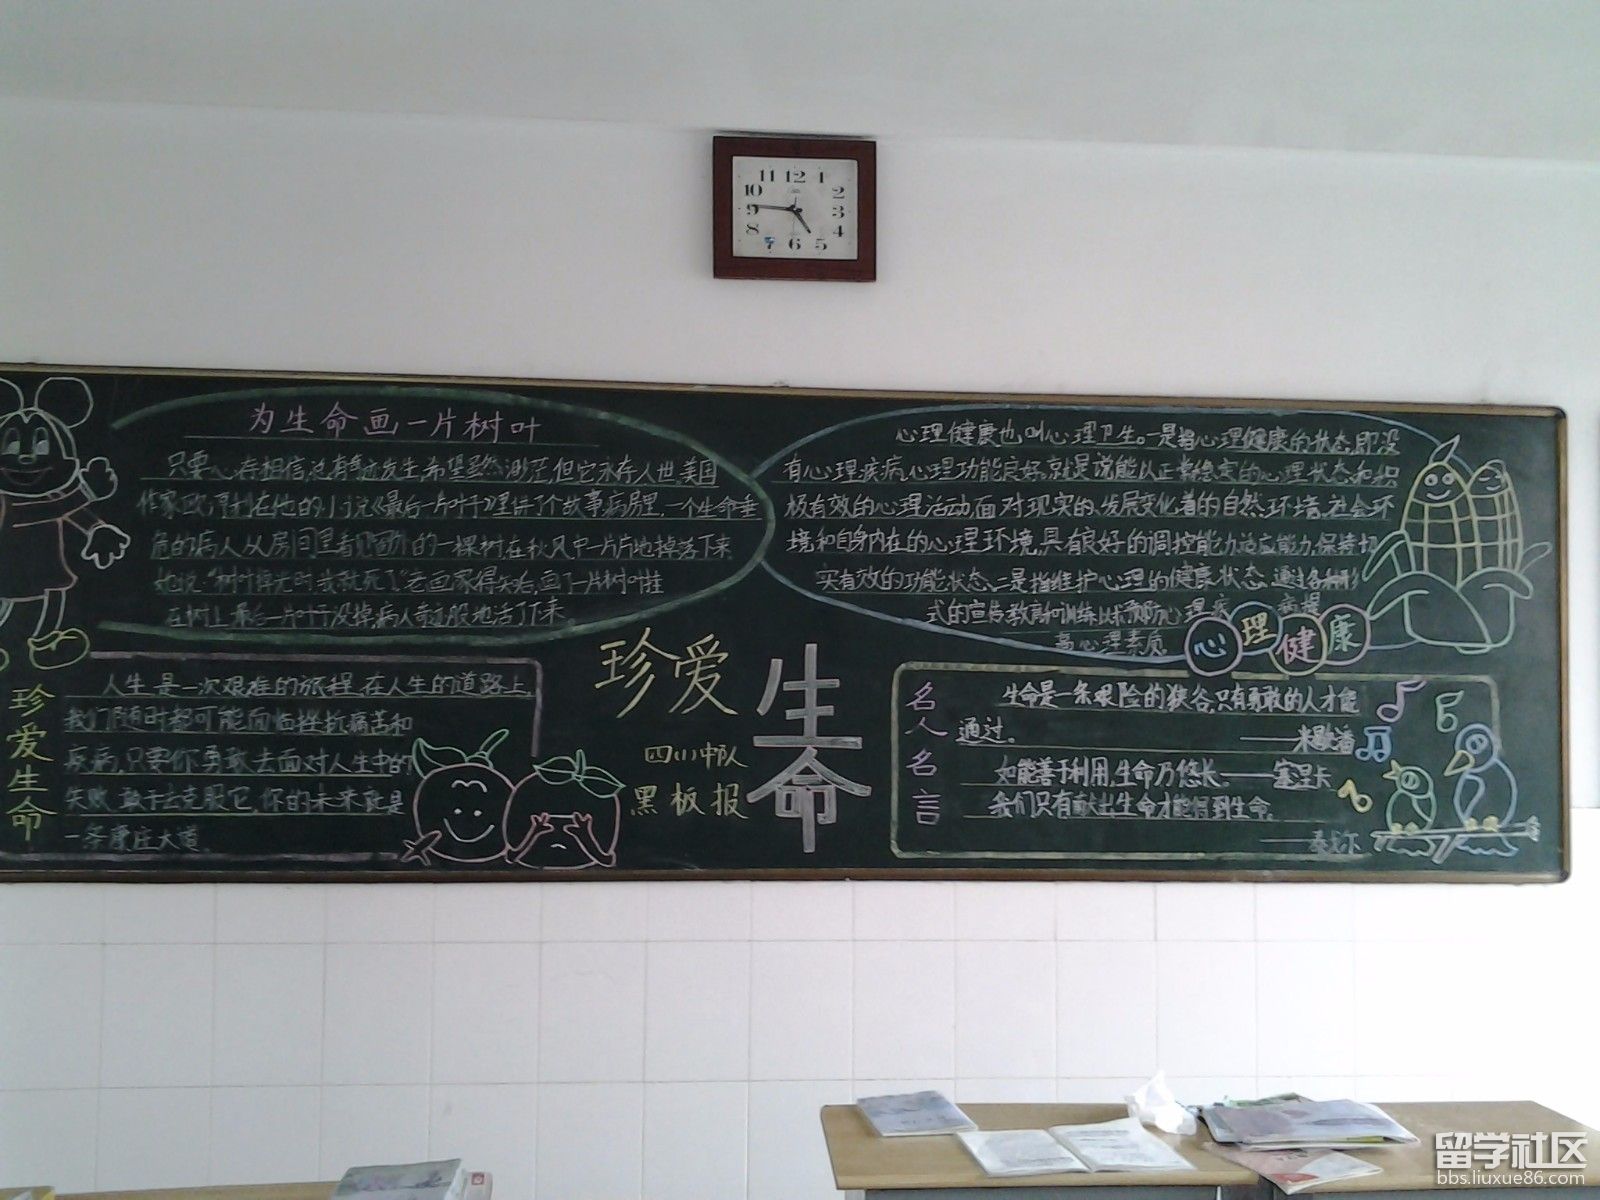 11 12 1
10 2
9 3
8 4
7 6 5
为生命画一片树叶
只要心存相信,总有奇迹发生,希望虽然渺茫,但它永存人世.美国
作家欧·亨利在他的小说《最后一片叶子》里讲了个故事:病房里,一个生命垂
危的病人从房间里看见窗外的一棵树,在秋风中一片片地掉落下来.
她说:“树叶掉光时,我就死了.”老画家得知后,画了一片树叶挂
在树上.最后一片叶子没掉,病人奇迹般地活了下来.
心理健康也叫心理卫生。一是指心理健康的状态,即没
有心理疾病,心理功能良好,就是说能以正常稳定的心理状态和积
极有效的心理活动,面对现实的、发展变化着的自然环境,社会环
境和自身内在的心理环境,具有良好的调控能力,适应能力,保持切
实有效的功能状态.二是指维护心理的健康状态,通过各种形
式的宣传教育和训练,以求预防心理疾病,提
高心理素质.
心理健康
珍爱生命
人生是一次艰难的旅程,在人生的道路上,
我们随时都可能面临挫折,痛苦和
疾病,只要你勇敢去面对人生中的
失败,敢于去克服它,你的未来就是
一条康庄大道.
珍爱
生命
四(1)中队
黑板报
名人名言
生命是一条艰险的狭谷,只有勇敢的人才能
通过.
——米歇潘
如能善于利用,生命乃悠长.——塞涅卡
我们只有献出生命,才能得到生命.
——泰戈尔
留学社区
bbs.liuxue86.com